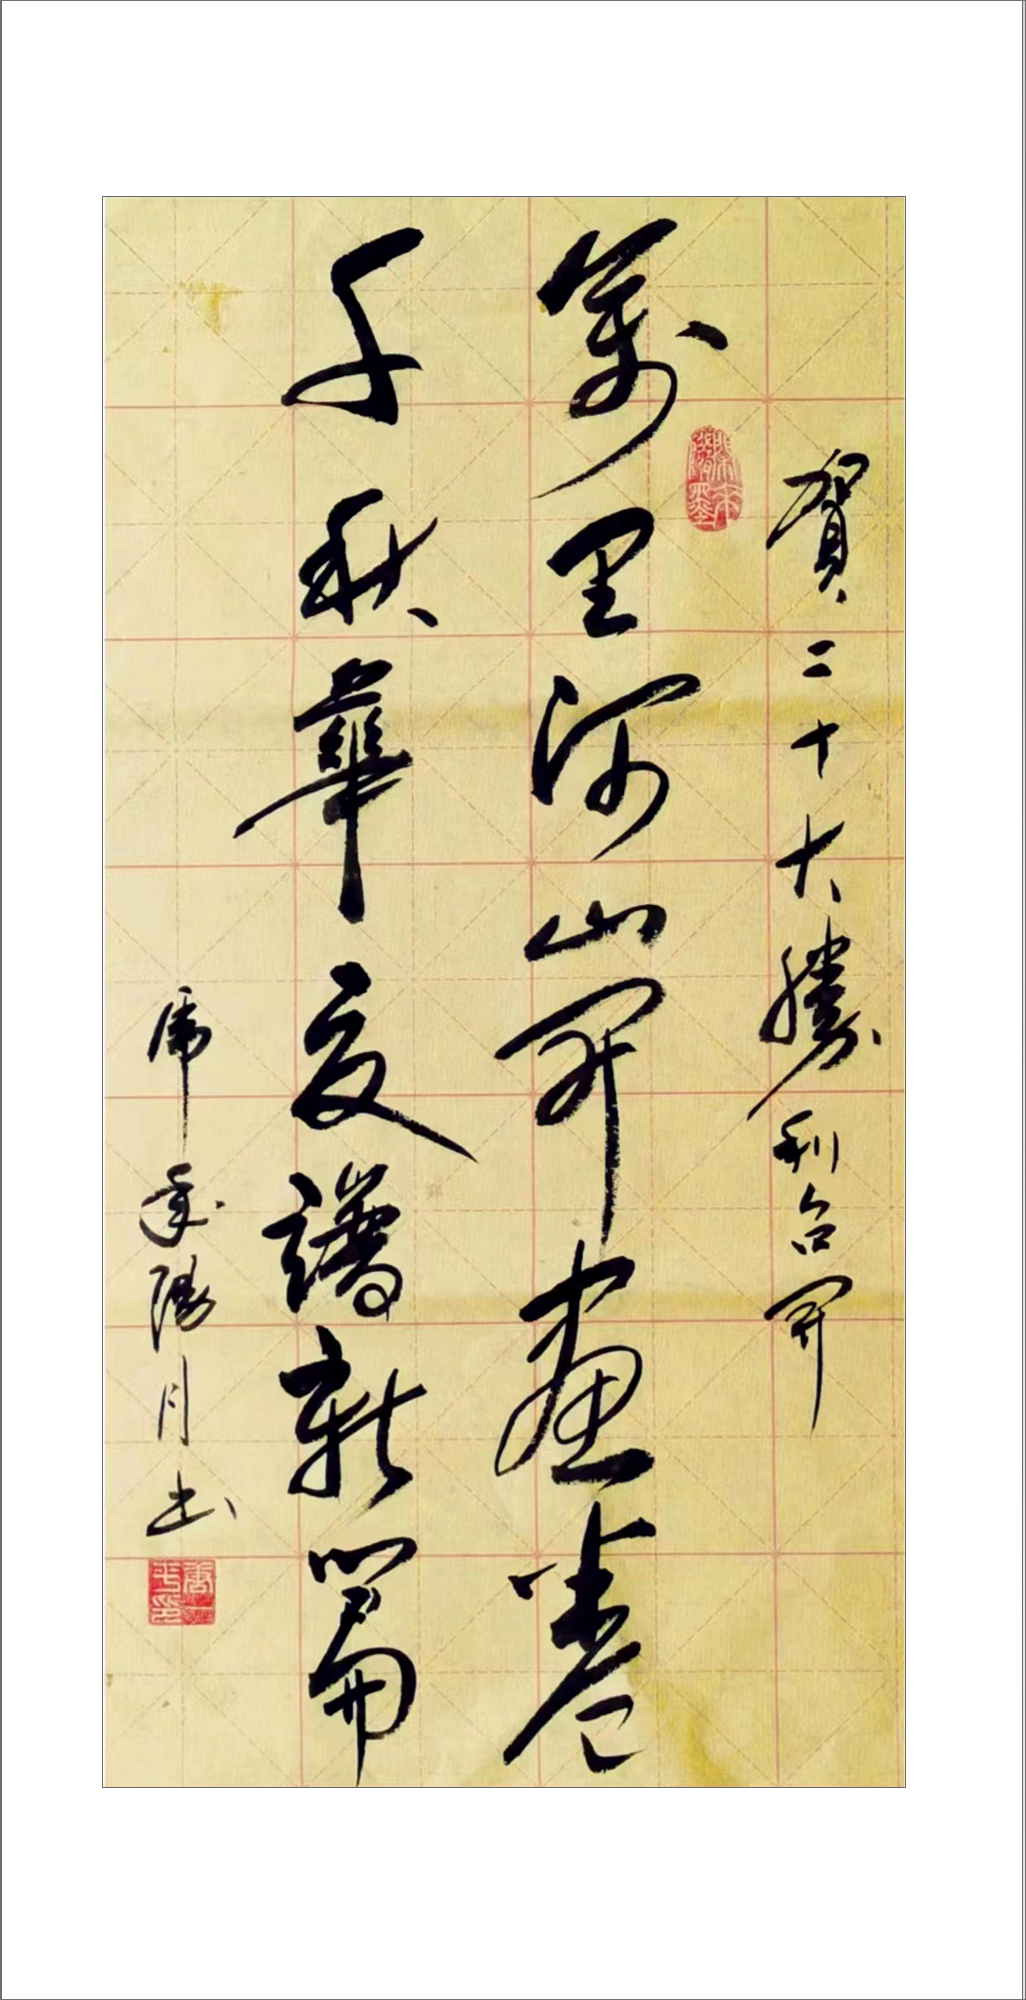 賀二十大勝利召開
萬里河山開畫卷
千秋華夏譜新篇
虎年陽月書